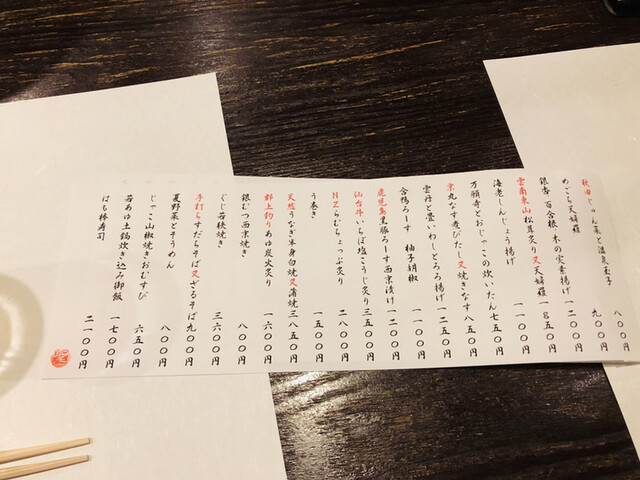 秋田じゅん菜と温泉玉子 八〇〇円
めごち天婦羅 九〇〇円
銀杏 百合根 木の実素揚げ 一二〇〇円
雲南東山松茸炙り又天婦羅 一八五〇円
海老しんじょう揚げ 一一〇〇円
万願寺とおじゃこの炊いたん 七五〇円
京丸なす煮びたし又焼きなす 八五〇円
雲丹と畳いわしとろろ揚げ 一二五〇円
合鴨ろーす 柚子胡椒 一二〇〇円
鹿児島黒豚ろーす西京漬け 一二〇〇円
仙台牛いちぼ塩こうじ炙り 三五〇〇円
NZらむちょっぷ炙り 二八〇〇円
う巻き 一五〇〇円
天然うなぎ半身白焼又蒲焼 三八五〇円
郡上釣りあゆ炭火炙り 一六〇〇円
銀むつ西京焼き 八〇〇円
ぐじ若狭焼き 三六〇〇円
手打ちすだちそば又ざるそば 九〇〇円
夏野菜とそうめん 八〇〇円
じゃこ山椒焼きおむすび 六五〇円
若あゆ土鍋炊き込み御飯 一七〇〇円
はも棒寿司 二一〇〇円